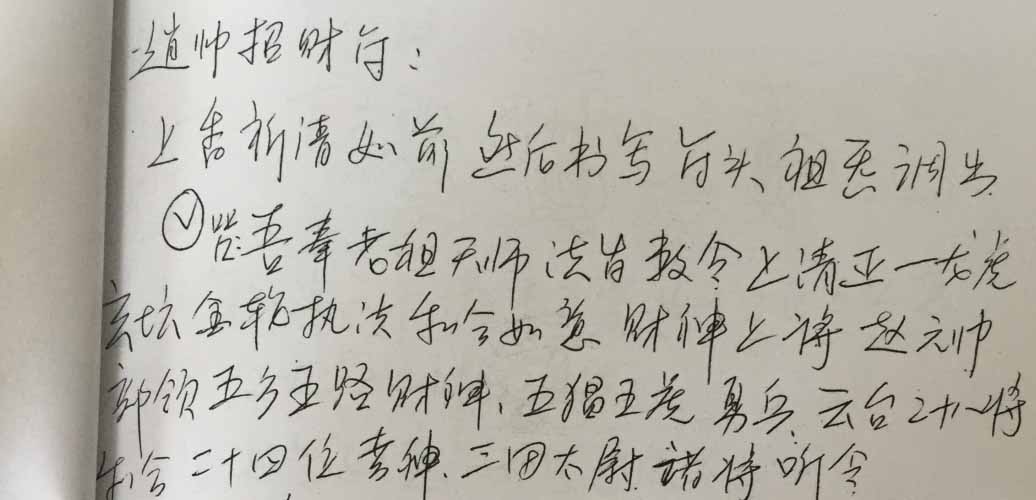 赵帅招财符:
上香祈请如前 然后书写符头 祖炁调出
咒:吾奉老祖天师法旨敕令上清正一龙虎
玄坛金轮执法和合如意 财神上将 赵元帅
部领五方五路财神、五猖五虎勇兵、云台二十八将
和合二十四位老神、三田太尉 诸将听令